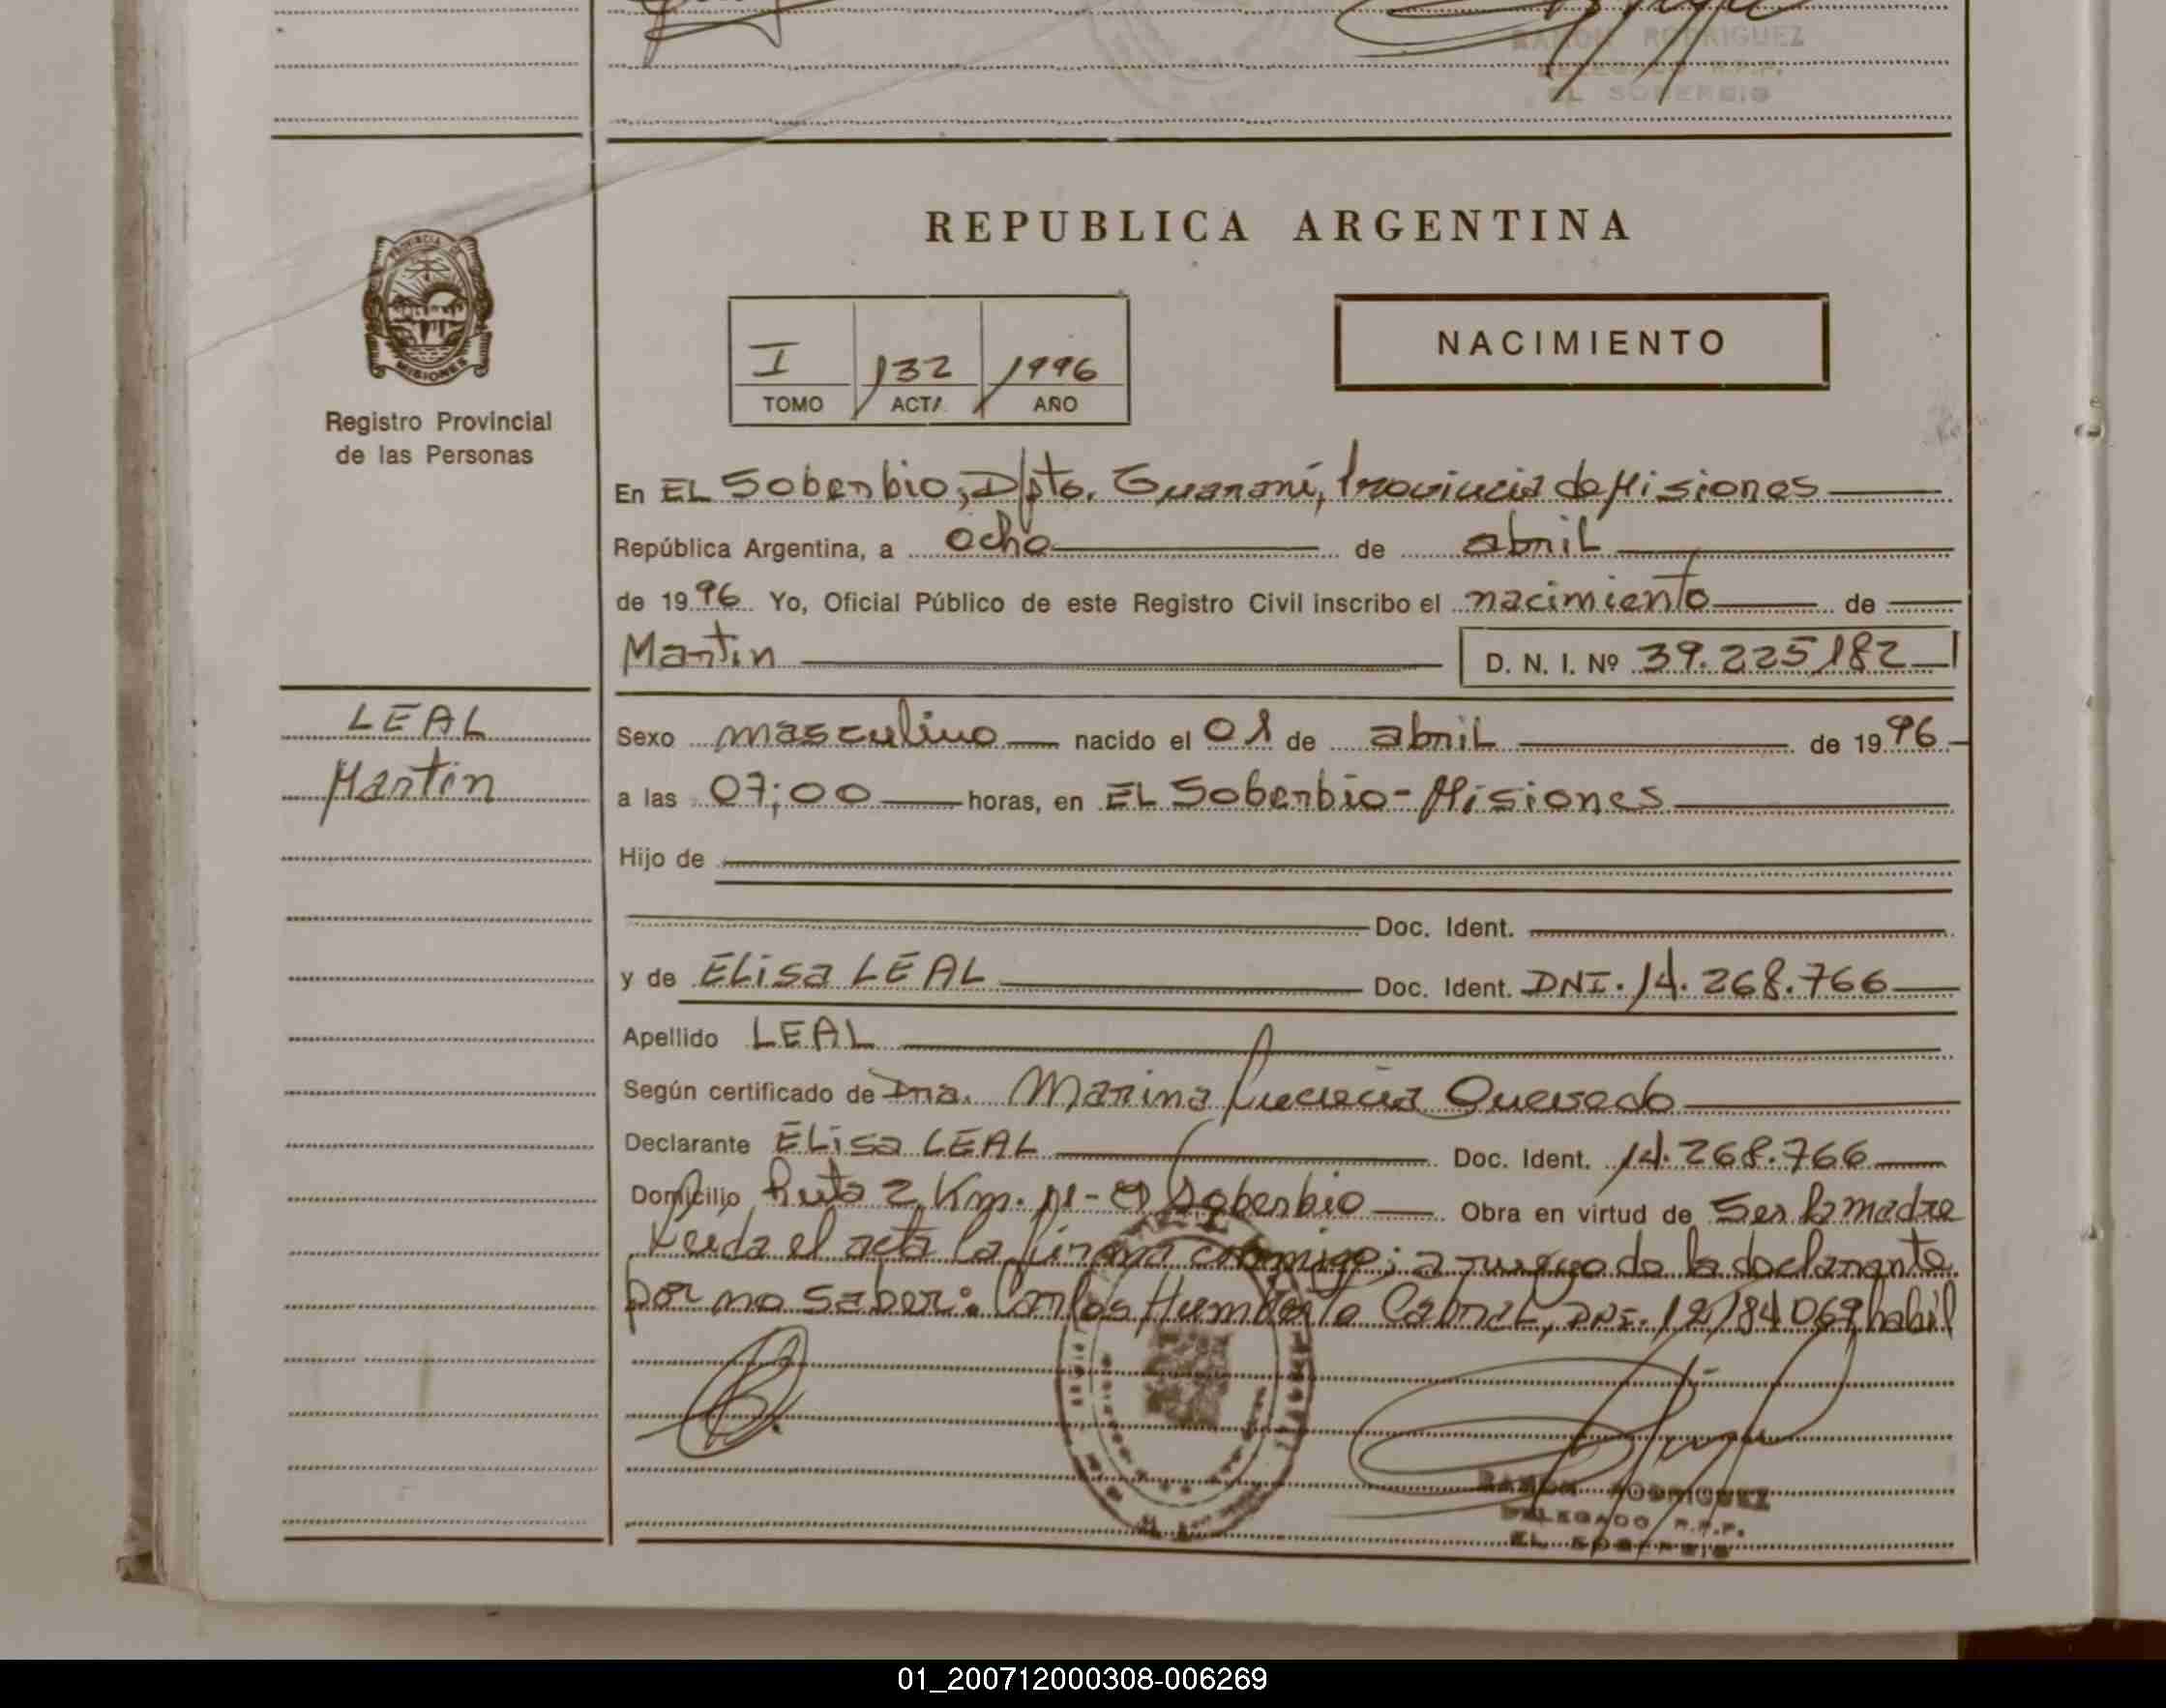 RAMON RODRIGUEZ
DELEGADO R.P.P.
EL SOBERBIO
PROVINCIA DE
MISIONES
Registro Provincial
de las Personas
REPUBLICA ARGENTINA
I 132 1996
TOMO ACTA AÑO
NACIMIENTO
En EL Soberbio, Dpto. Guaraní, Provincia de Misiones
República Argentina, a ocho de abril
de 1996 Yo, Oficial Público de este Registro Civil inscribo el nacimiento de
Martin D. N. I. Nº 39.225182
LEAL
Martin
Sexo masculino nacido el 01 de abril de 1996
a las 07:00 horas, en EL Soberbio - Misiones
Hijo de
Doc. Ident.
y de ELisa LEAL Doc. Ident. DNI. 14.268.766
Apellido LEAL
Según certificado de Dra. Marina Lucrecia Quevedo
Declarante ELisa LEAL Doc. Ident. 14.268.766
Domicilio Ruta 2 Km. 11 - El Soberbio Obra en virtud de Ser la madre
Leida el acta la firma conmigo; a ruego de la declarante
por no saber: Carlos Humberto Cabral, DNI. 12184069, habil
RAMON RODRIGUEZ
DELEGADO R.P.P.
EL SOBERBIO
01_200712000308-006269